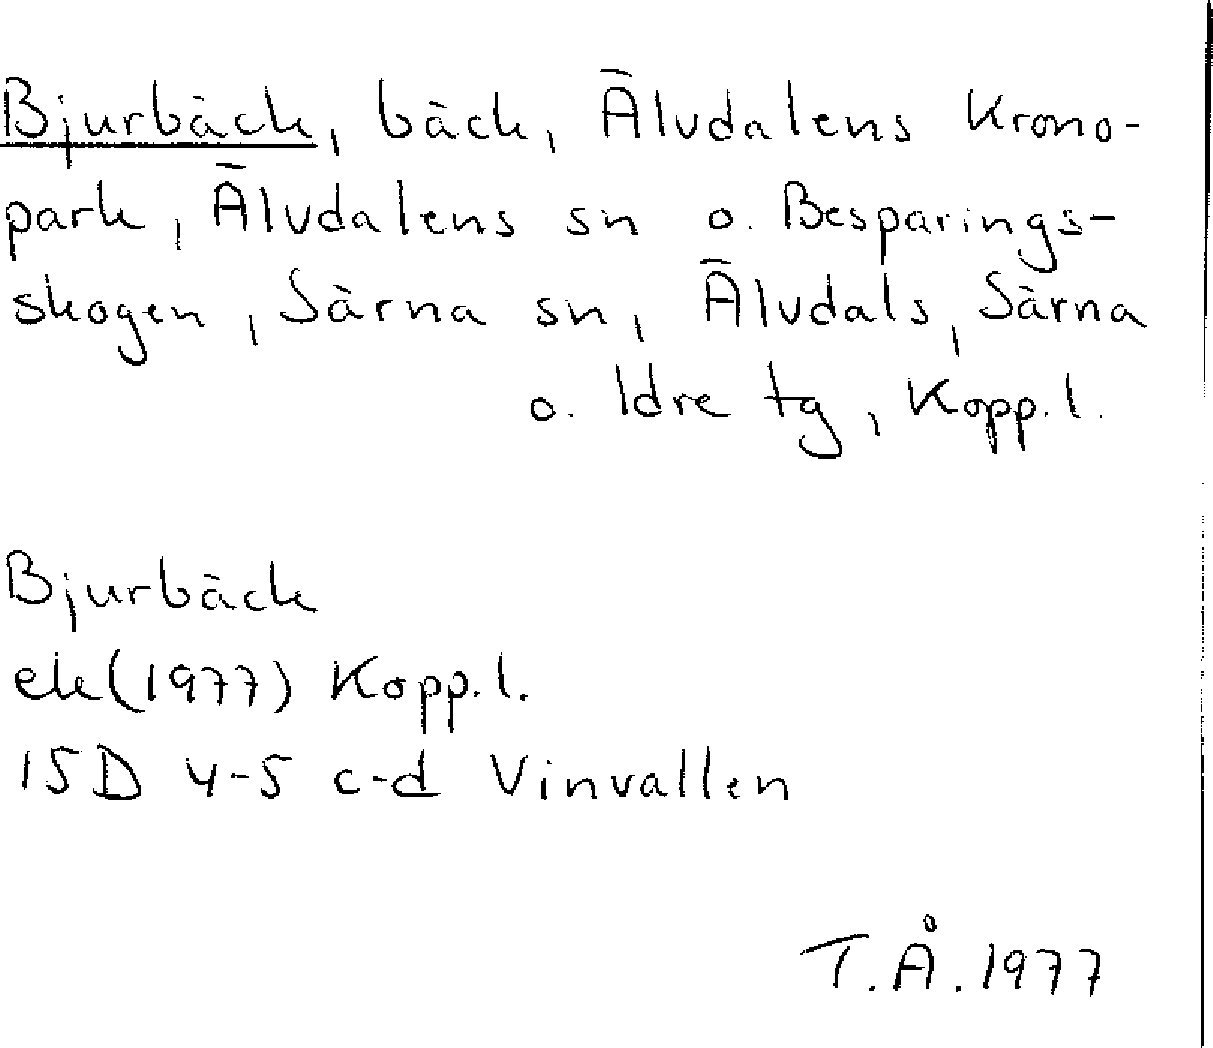 Bjurbäck, bäck, Älvdalens Krono-
park, Älvdalens sn o. Besparings-
skogen, Särna sn, Älvdals, Särna
o. Idre tg, Kopp. l.
Bjurbäck
ek (1977) Kopp. l.
15D 4-5 c-d Vinvallen
T.Å. 1977